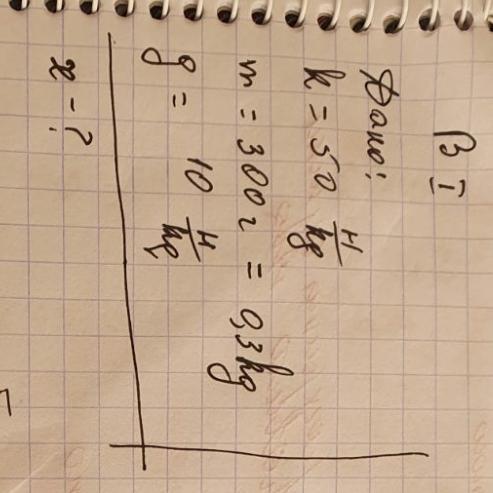 В I
Дано:
k = 50 Н/kg
m = 300г = 0,3kg
g = 10 Н/kg
x - ?